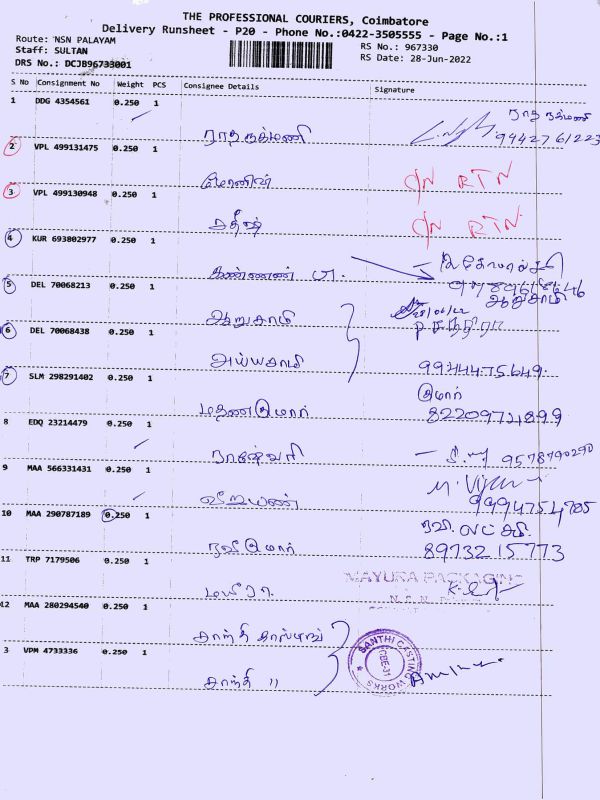 THE PROFESSIONAL COURIERS, Coimbatore
Delivery Runsheet - P20 - Phone No.:0422-3505555 - Page No.:1
Route: NSN PALAYAM
Staff: SULTAN
DRS No.: DCJB96733001
RS No.: 967330
RS Date: 28-Jun-2022
S No Consignment No Weight PCS Consignee Details Signature
1 DDG 4354561 0.250 1
ராதாருக்மணி 99427 61223
2 VPL 499131475 0.250 1
மோனிஷ் RTN
3 VPL 499130948 0.250 1
சதீஷ் RTN
4 KUR 693802977 0.250 1
கண்ணன்
5 DEL 70068213 0.250 1
ஆறுசாமி ஆறுசாமி
28/06/22
6 DEL 70068438 0.250 1
அய்யசாமி 9944475649
7 SLM 298291402 0.250 1
குமார்
மதனகுமார் 8220974899
8 EDQ 23214479 0.250 1
ராஜேஸ்வரி 9578790290
9 MAA 566331431 0.250 1
வீறையண் 9994754705
10 MAA 290787189 0.250 1
ரவிகுமார் 8973215773
11 TRP 7179506 0.250 1
MAYURA PACKAGING
மயூரா
12 MAA 280294540 0.250 1
சாந்தி
3 VPM 4733336 0.250 1
சாந்தி "
SANTHI CASTING WORKS
CBE-31